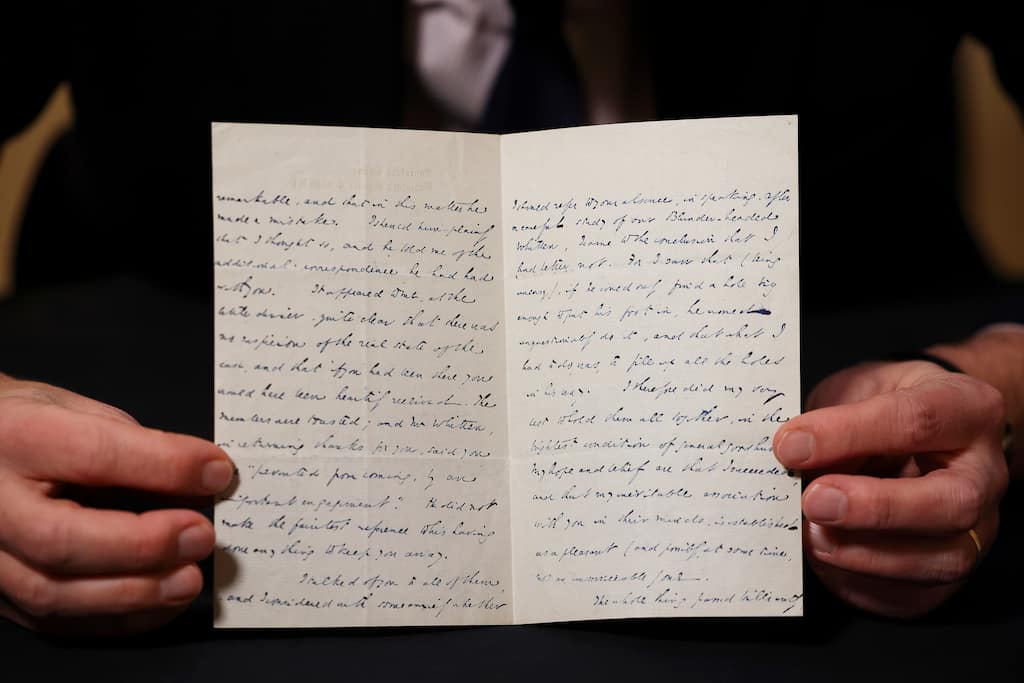 remarkable, and that in this matter he
made a mistake. I should have plainly
that I thought so, and he told me of the
additional correspondence he had had
with you. It appeared to me, at the
little dinner, quite clear that there was
no suspicion of the real state of the
case, and that if you had been there you
would have been heartily received. The
members were toasted; and Mr Whitten,
in returning thanks for you, said you
"prevented from coming, by an
important engagement". He did not
make the faintest reference to his having
done any thing to keep you away.
I talked of you to all of them
and I considered with some whether
I should refer to your absence, in speaking. After
a careful study of our Blunder-headed
Whitten, I came to the conclusion that I
had better not. For I saw that (being
uneasy), if he could only find a hole big
enough to put his foot in, he would
unquestionably do it, and that what I
had to do was, to fill up all the holes
in his way. I therefore did my very
best to hold them all together, in the
highest condition of general good
My hope and belief are that I succeeded
and that my inevitable association
with you in their minds, is established
as a pleasant (and possibly at some time,
not an unserviceable) one.
The whole thing passed